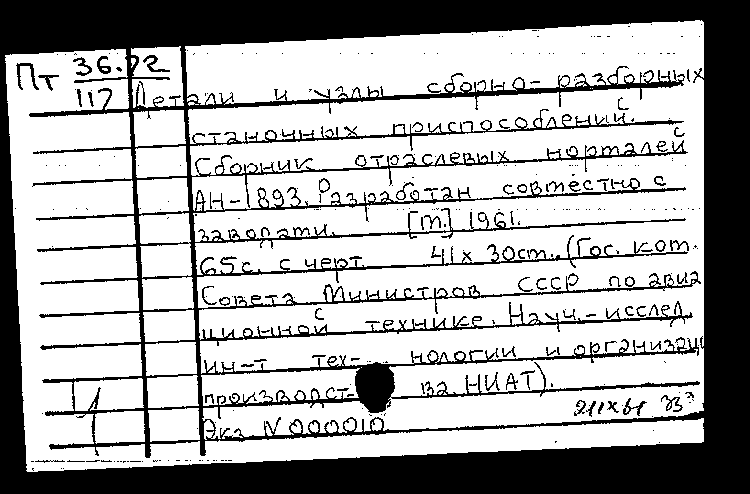 Пт 36.72
117 Детали и узлы сборно-разборных
станочных приспособлений.
Сборник отраслевых норталей
АН-1893. Разработан совтестно с
заводати. [т.] 1961.
65с. с черт 41х30ст. (Гос. кот.
Совета Министров СССР по авиа
ционной технике. Науч.-исслед.
ин-т тех- нологии и организаци
производст- ва НИАТ).
Экз N000010